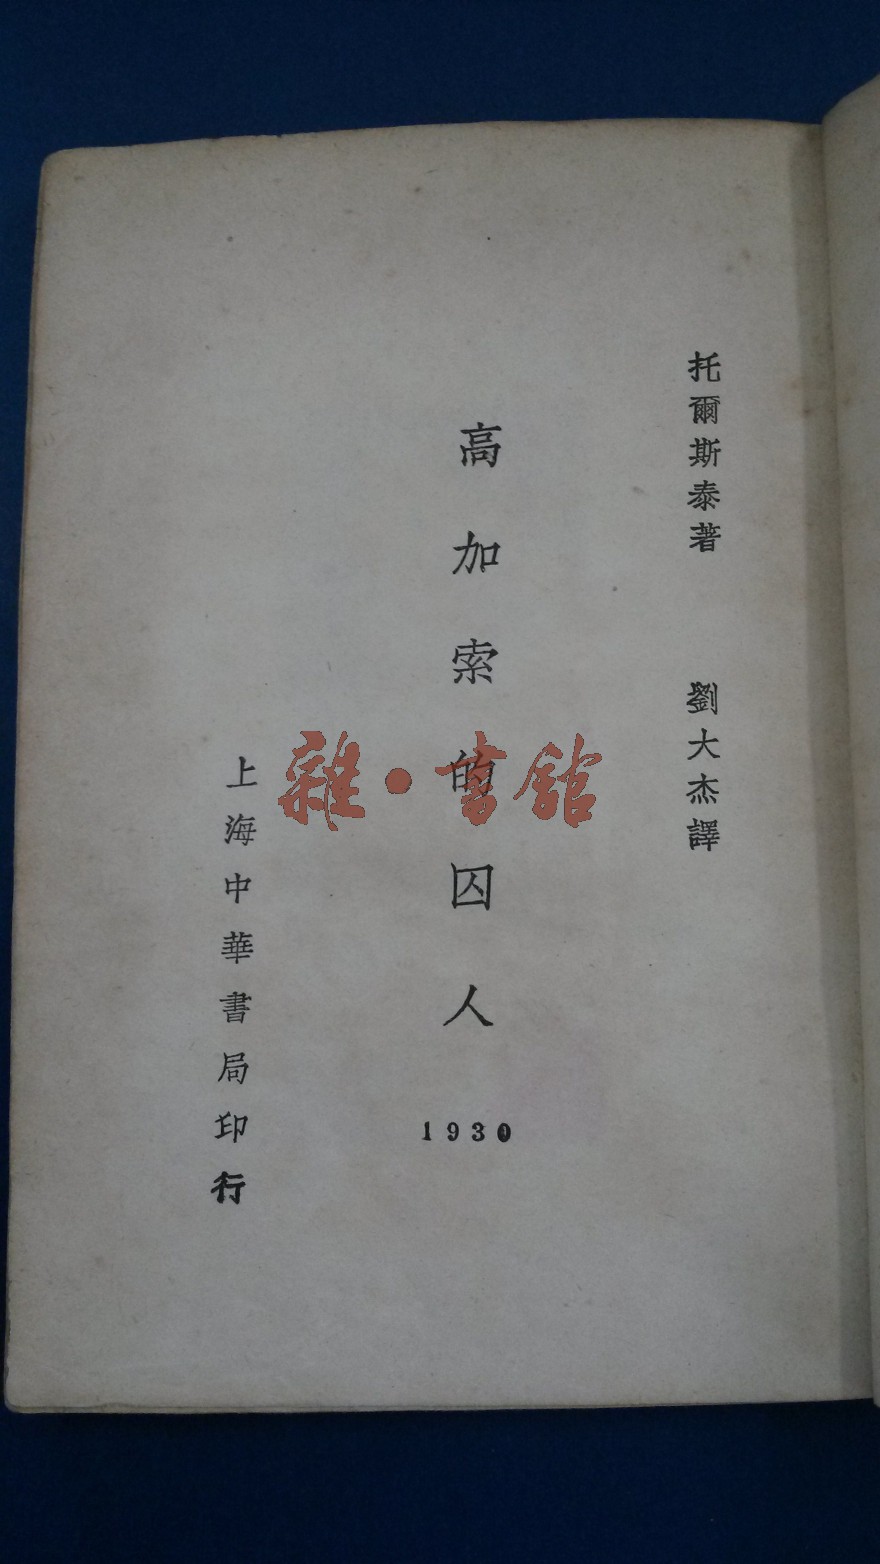 托爾斯泰著　　劉大杰譯
高加索的囚人
1930
上海中華書局印行
雜·書館